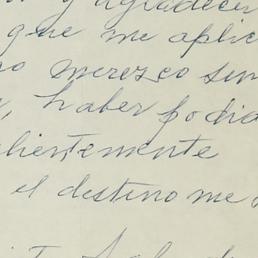 y agradecer
que me aplic
no merezco sin
, haber podid
lientemente
el destino me